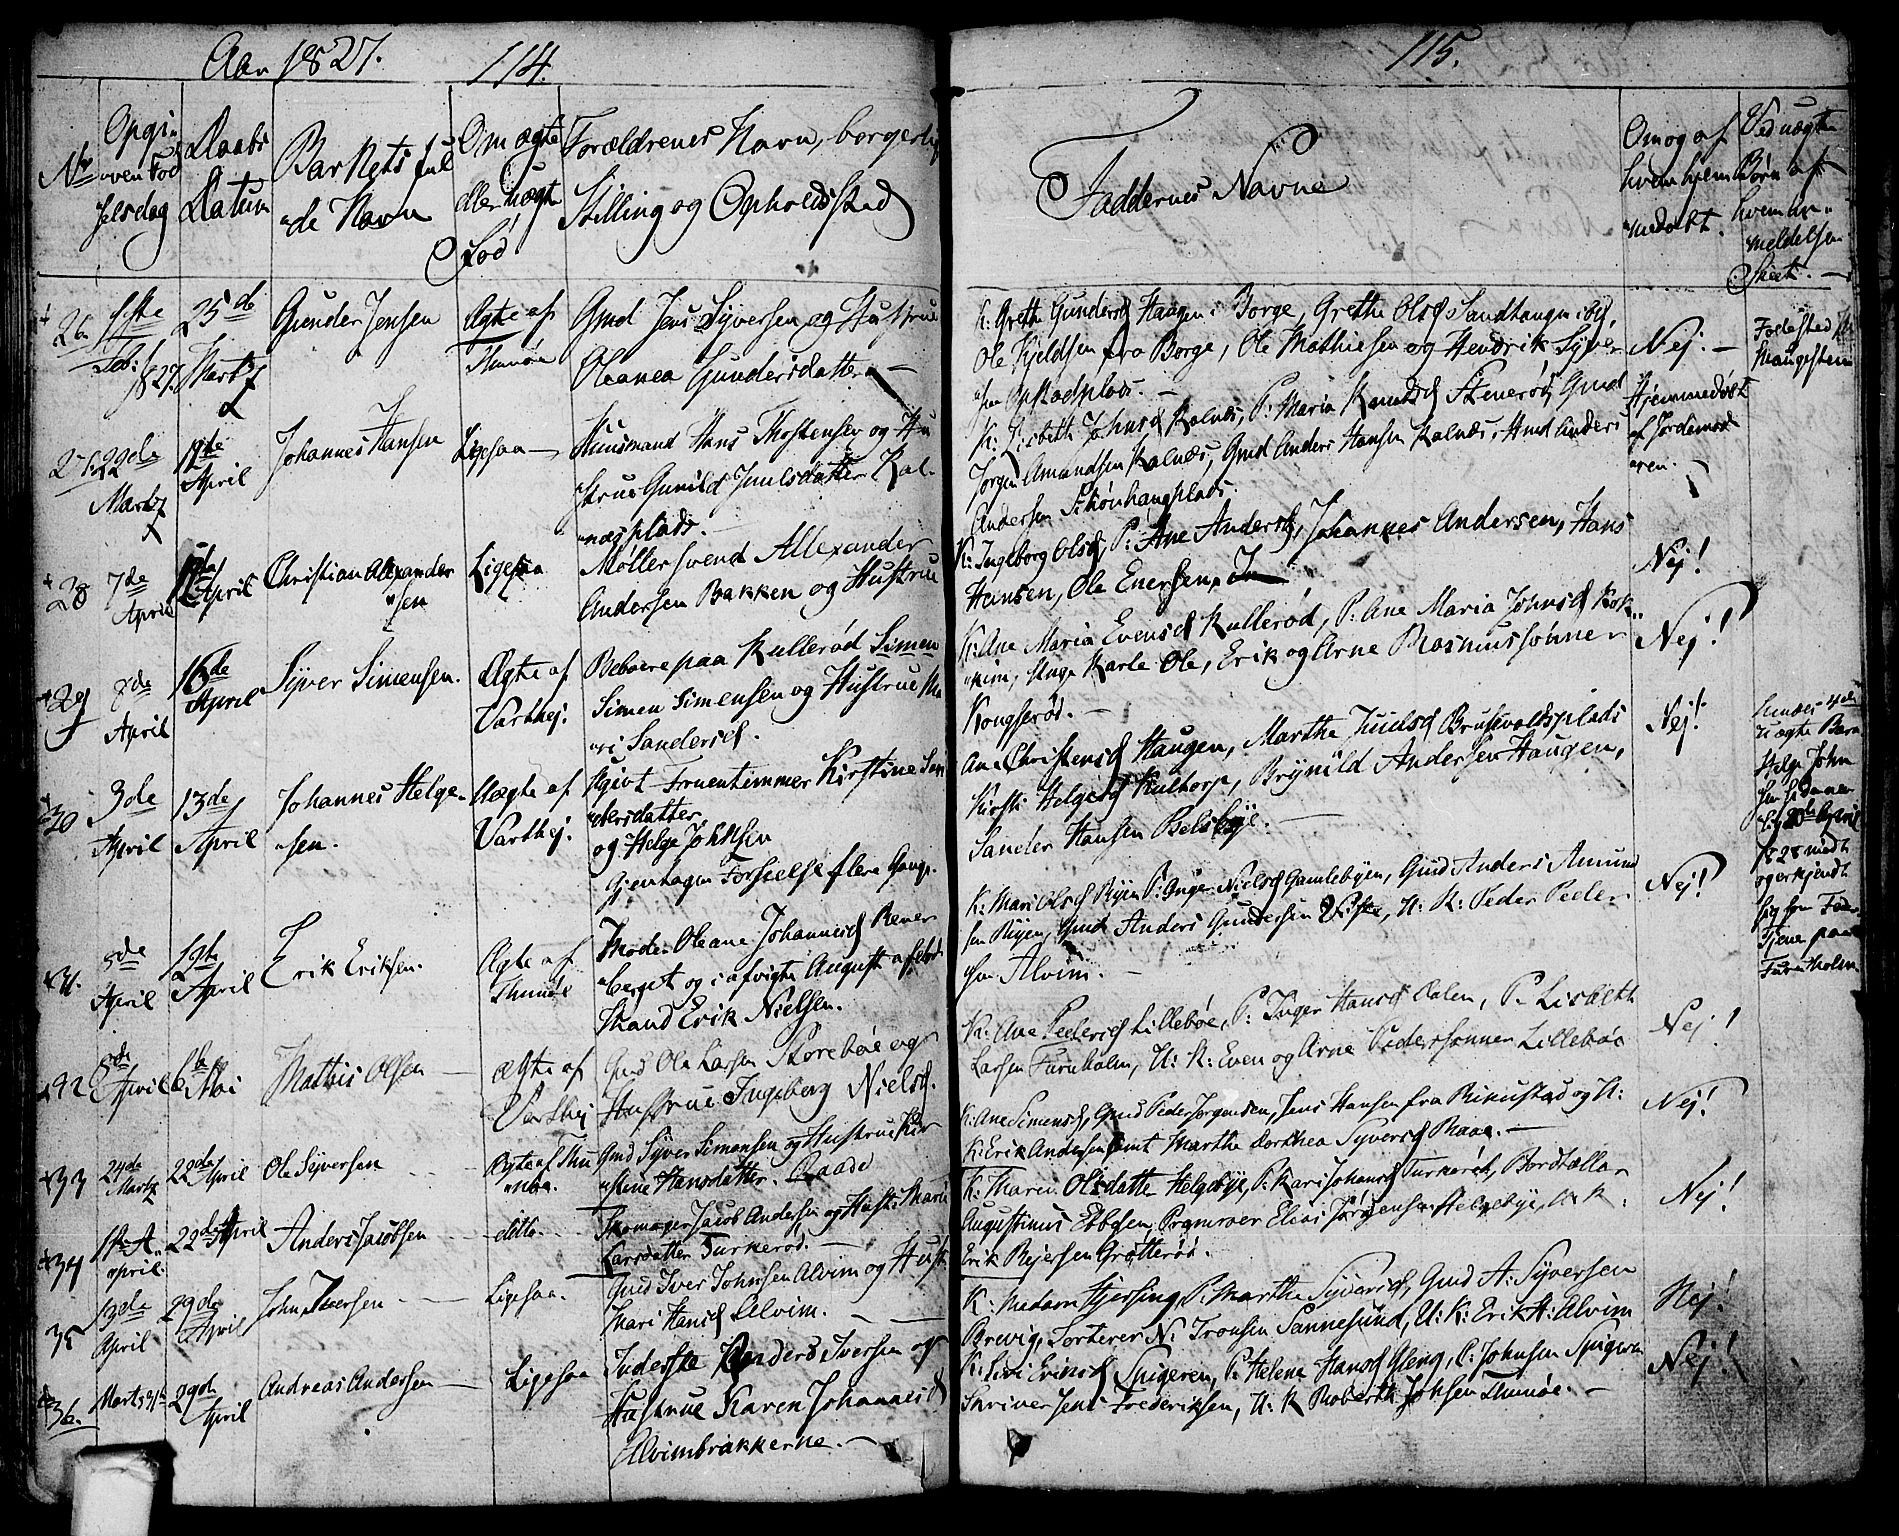 Aar 1827. 114.
No
Opgi-
ven Fød
selsdag
Daabs
Datum
Barnets ful
de Navn
Om ægte
eller uægte
Fød
Forældrenes Navn, borgerlig
Stilling og Opholdssted
26 1ste Febr. 1827 25de Martz Gunder Jensen Ægte af Thunøe
Gmd Jens Syversen og Hustrue
Oleanea Gundersdatter
27 22de Martz April Johannes Hansen Ligesaa
Huusmand Hans Thostensen og Hu
strue Gunild Juulsdatter Kal-
næsplads.
28 7de April April Christian Alexander
sen Ligesaa
Møllersvend Allexander
Andersen Bakken og Hustrue
29 8de April 16de April Syver Simensen. Ægte af Varthej.
Beboere paa Kullerød Simen
Simen Simensen og Hustrue Ma
ri Sandersd.
30 3de April 13de April Johannes Helge-
sen. Uægte af Varthej.
Ugivt Fruentimmer Kirstine San
dersdatter
og Helge Johnsen
Gjentagen Forseelse flere Gange.
31. 5de April April Erik Eriksen. Ægte af Thunøe
Moder Oleane Johannesd
berget og i afvigte August afdød
Mand Erik Nielsen.
8de April 6te Mai Mathis Olsen Ægte af Varthej
Gmd Ole Larsen Storebøe og
Hustrue Ingeborg Nielsd.
33 24de Martz 22de April Ole Syversen Ægte af Thu
nøe.
Gmd Syver Simensen og Hustrue Kir
stene Hansdatter. Raade
34 1te A-
pril. 22de April Anders Jacobsen ditto
Skomager Jacob Andersen og Hust: Marie
Larsdatter Turkerød.
35 13de April 29de April John Iversen Ligesaa.
Gmd Iver Johnsen Alvim og Hust
Mari Hansd Alvim.
36. Marts 29de April Andreas Andersen Ligesaa
Inderste Anders Iversen og
Hustrue Karen Johannesd
Alvimbrakkerne.
115.
Faddernes Navne
Om og af
hvem hjem
medøbt.
Ved uægte
Børn af
hvem An-
meldelsen
Skeet.
K: Grethe Gundersd Haugen i Borge, Grethe Olsd Sandhaugen ibd,
Ole Kjeldsen fra Borge, Ole Mathiesen og Hendrik Syver
sen Opstadplads. Nej.
Fødested
K: Lisbeth Johnsd Kalnæs, P: Maria Knudsd Stenerød, Gmd
Jørgen Amundsen Kalnæs, Gmd Anders Hansen Kalnæs, Hmd Anders
Andersen Skiønhaugplads.
Hjemmedøbt
af Jordemod
eren.
K: Ingeborg Olsd, P: Ane Andersd, Johannes Andersen, Hans
Hansen, Ole Enersen, Nej!
K: Ane Maria Evensd Kullerød, P: Ane Maria Johnsd Kok-
kim, Unge Karle Ole, Erik og Arne Rasmussønner
Kongserød. Nej!
Ane Christensd Haugen, Marthe Juulsd Brusevoldsplads
Kirsti Helgesd Kultorp, Brynild Andersen Haugen,
Sander Hansen Belsbye. Nej!
uægte Barn
Helge John
sen
April
1828 mødt
og erkjendt
sig som Fader
Tjene paa
Furuholm.
K: Mari Olsd Ryen P: Inger Nielsd Gamlebyen, Gmd Anders Amund
sen Ryen, Gmd Anders Gundersen Visse, U: K: Peder Peder
sen Alvim. Nej!
K: Ane Pedersd Lillebøe, P: Inger Hansd Dalen, P. Lisbeth
Larsen Furuholm, U: K: Even og Arne Pedersønner Lillebøe Nej!
K: Ane Simensd, Gmd Peder Jørgensen, Jens Hansen fra Rikustad og U:
K: Erik Andersen samt Marthe Dorthea Syversd Raae. Nej!
K: Maren Olsdatter Helgebye, P: Kari Johansd Turkerød, Bordtæller
Augustinus Ebbesen, Prammer Elias Jørgensen Helgebye, U: K:
Erik Rejersen Grøtterød. Nej!
K: Madam Hjersing, P: Marthe Syversd, Gmd A: Syversen
Brevig, Sorterer N: Tronsen Sannesund, U: K: Erik H: Alvim Nej!
K: Siri Eriksd Spigeren, P. Helene Hansd Gleng, P: Johnsen Spigeren
Skriver Jens Frederiksen, U: K Roberth Johsen Thunøe. Nej!